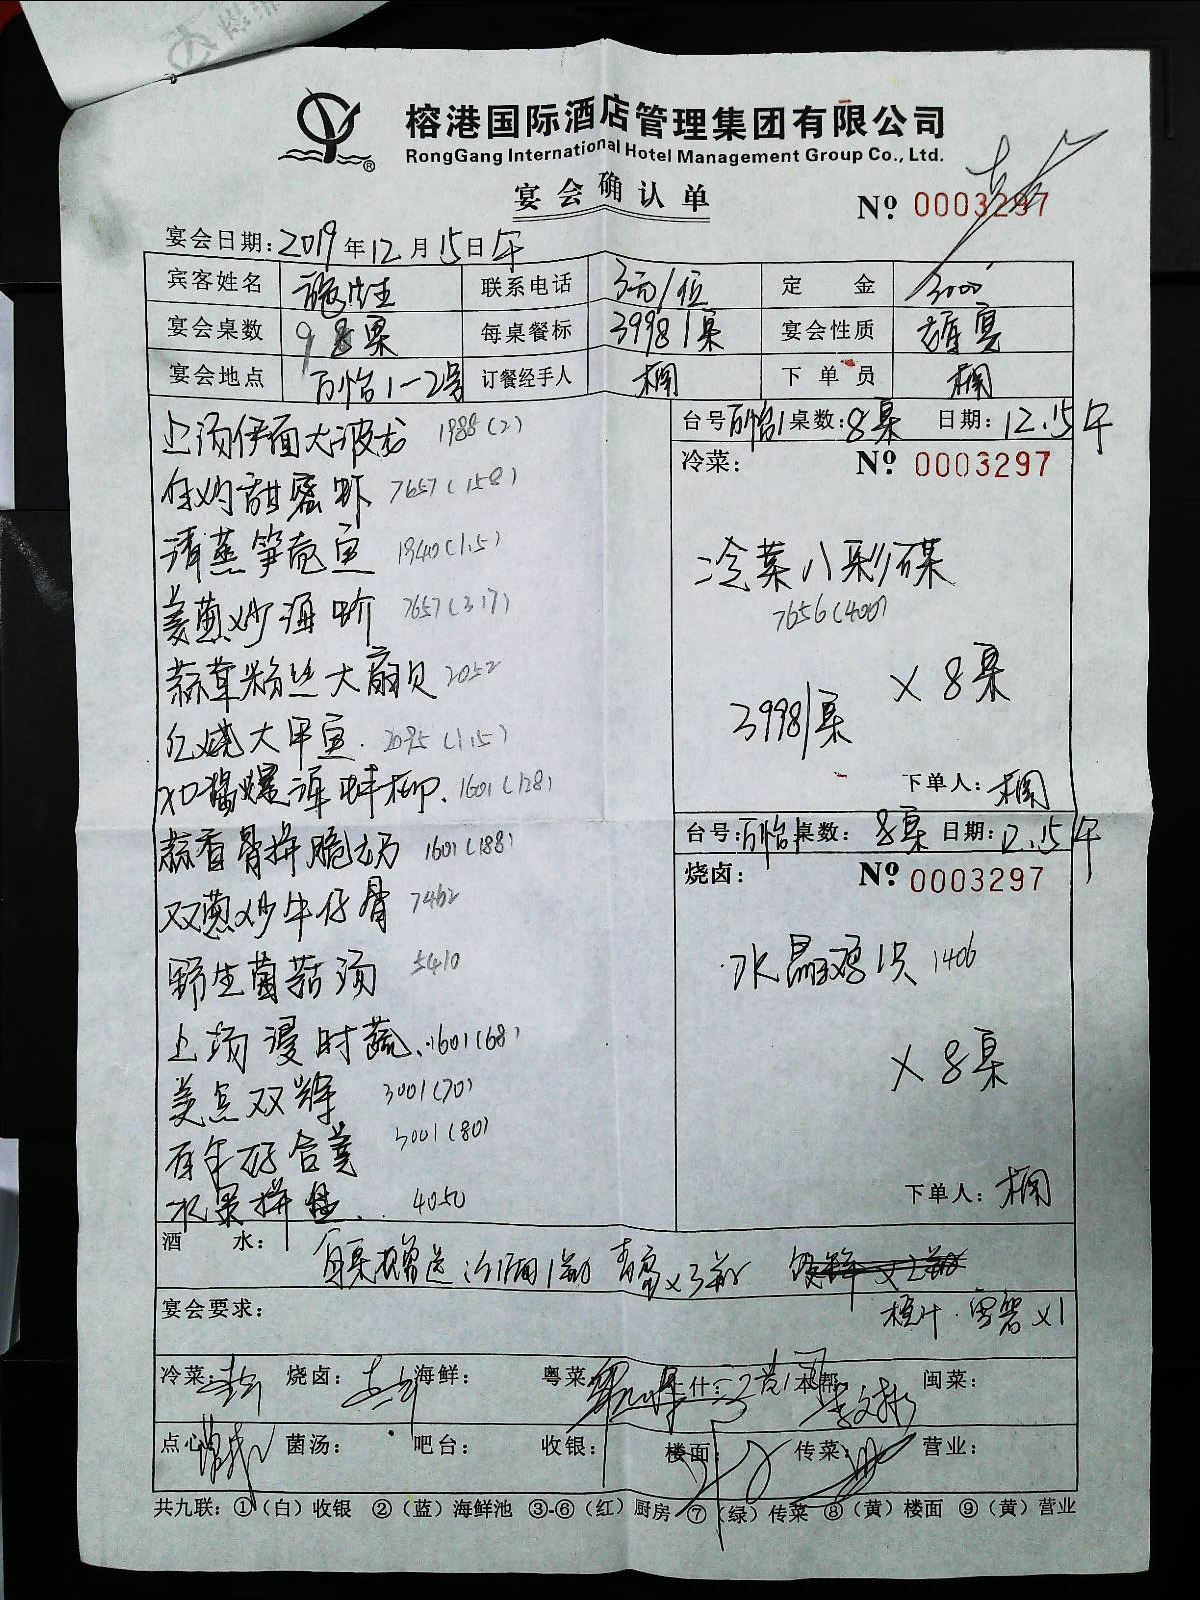 榕港国际酒店管理集团有限公司
RongGang International Hotel Management Group Co., Ltd.
宴会确认单
№ 0003297
宴会日期：2019年12月15日午
宾客姓名 施先生 联系电话 3元/位 定金 3000
宴会桌数 9 8桌 每桌餐标 3998/桌 宴会性质
宴会地点 万怡1-2号 订餐经手人 下单员
上汤伊面大波龙 1988(2)
台号：万怡1 桌数：8桌 日期：12.15午
冷菜： № 0003297
甜蜜虾 7657(158)
清蒸笋壳鱼 1840(1.5)
姜葱炒海蚧 7657(317)
蒜茸粉丝大扇贝 2052
红烧大甲鱼 2095(1.5)
XO酱爆海蚌柳 1601(128)
蒜香骨拼脆奶 1601(188)
双葱炒牛仔骨 7462
野生菌菇汤 5410
上汤浸时蔬 1601(68)
美点双辉 3001(70)
百年好合羹 3001(80)
水果拼盘 4050
冷菜八彩碟
7656(400)
3998/桌 × 8桌
下单人：
台号：万怡1 桌数：8桌 日期：12.15午
烧卤： № 0003297
水晶鸡1只 1406
× 8桌
下单人：
酒水： 每桌赠送
宴会要求： 橙汁.雪碧x1
冷菜： 烧卤： 海鲜： 粤菜： 上什： 本帮： 闽菜：
点心： 菌汤： 吧台： 收银： 楼面： 传菜： 营业：
共九联：①（白）收银 ②（蓝）海鲜池 ③-⑥（红）厨房 ⑦（绿）传菜 ⑧（黄）楼面 ⑨（黄）营业